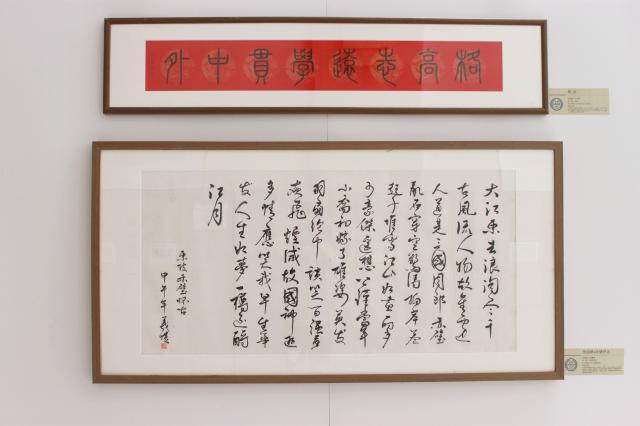 格高志遠學貫中外
大江东去浪淘尽千
古風流人物故垒西边
人道是三國周郎赤壁
乱石穿空驚涛拍岸卷
起千堆雪江山如画一时多
少豪傑遥想公瑾當年
小喬初嫁了雄姿英发
羽扇纶巾谈笑间强虏
灰飛煙滅故國神遊
多情應笑我早生華
发人生如夢一樽还酹
江月
东坡赤壁怀古
甲午年